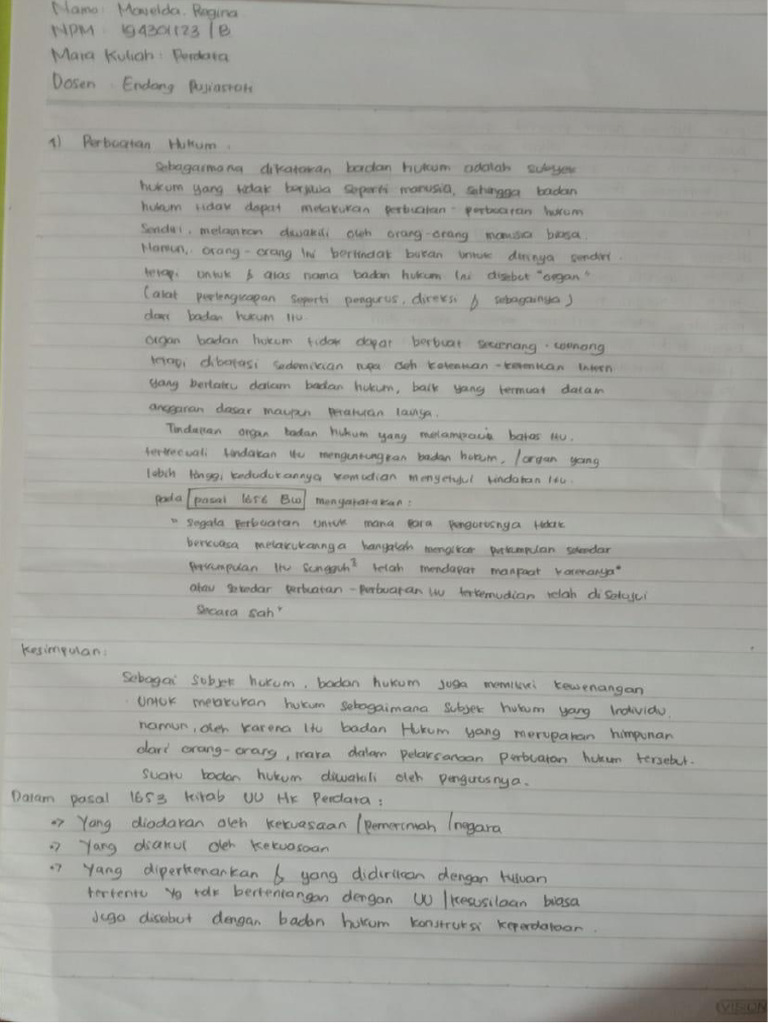 Nama : Mavelda. Regina
NPM : 194301123 / B
Mata Kuliah : Perdata
Dosen : Endang Pujiastuti
1) Perbuatan Hukum.
Sebagaimana dikatakan badan hukum adalah subyek
hukum yang tidak berjiwa seperti manusia, sehingga badan
hukum tidak dapat melakukan perbuatan-perbuatan hukum
sendiri, melainkan diwakili oleh orang-orang manusia biasa.
Namun, orang-orang ini bertindak bukan untuk dirinya sendiri
tetapi untuk & atas nama badan hukum ini disebut "organ"
(alat perlengkapan seperti pengurus, direksi & sebagainya)
dari badan hukum itu.
organ badan hukum tidak dapat berbuat sewenang-wenang
tetapi dibatasi sedemikian rupa oleh ketentuan-ketentuan intern
yang berlaku dalam badan hukum, baik yang termuat dalam
anggaran dasar maupun peraturan lainya.
Tindakan organ badan hukum yang melampaui batas itu.
terkecuali tindakan itu menguntungkan badan hukum, /organ yang
lebih tinggi kedudukannya kemudian menyetujui tindakan itu.
pada pasal 1656 BW menyatakan :
" Segala perbuatan untuk mana para pengurusnya tidak
berkuasa melakukannya hanyalah mengikat perkumpulan sekedar
perkumpulan itu sungguh² telah mendapat manpaat karenanya"
atau sekedar perbuatan-perbuatan itu terkemudian telah disetujui
secara sah"
Kesimpulan:
Sebagai subjek hukum, badan hukum juga memiliki kewenangan
untuk melakukan hukum sebagaimana subjek hukum yang individu,
namun, oleh karena itu badan Hukum yang merupakan himpunan
dari orang-orang, maka dalam pelaksanaan perbuatan hukum tersebut.
suatu badan hukum diwakili oleh pengurusnya.
Dalam pasal 1653 kitab UU Hk Perdata :
Yang diadakan oleh kekuasaan / pemerintah / negara
Yang diakui oleh kekuasaan
Yang diperkenankan & yang didirikan dengan tujuan
tertentu yg tdk bertentangan dengan UU / kesusilaan biasa
Juga disebut dengan badan hukum konstruksi keperdataan.
VISION